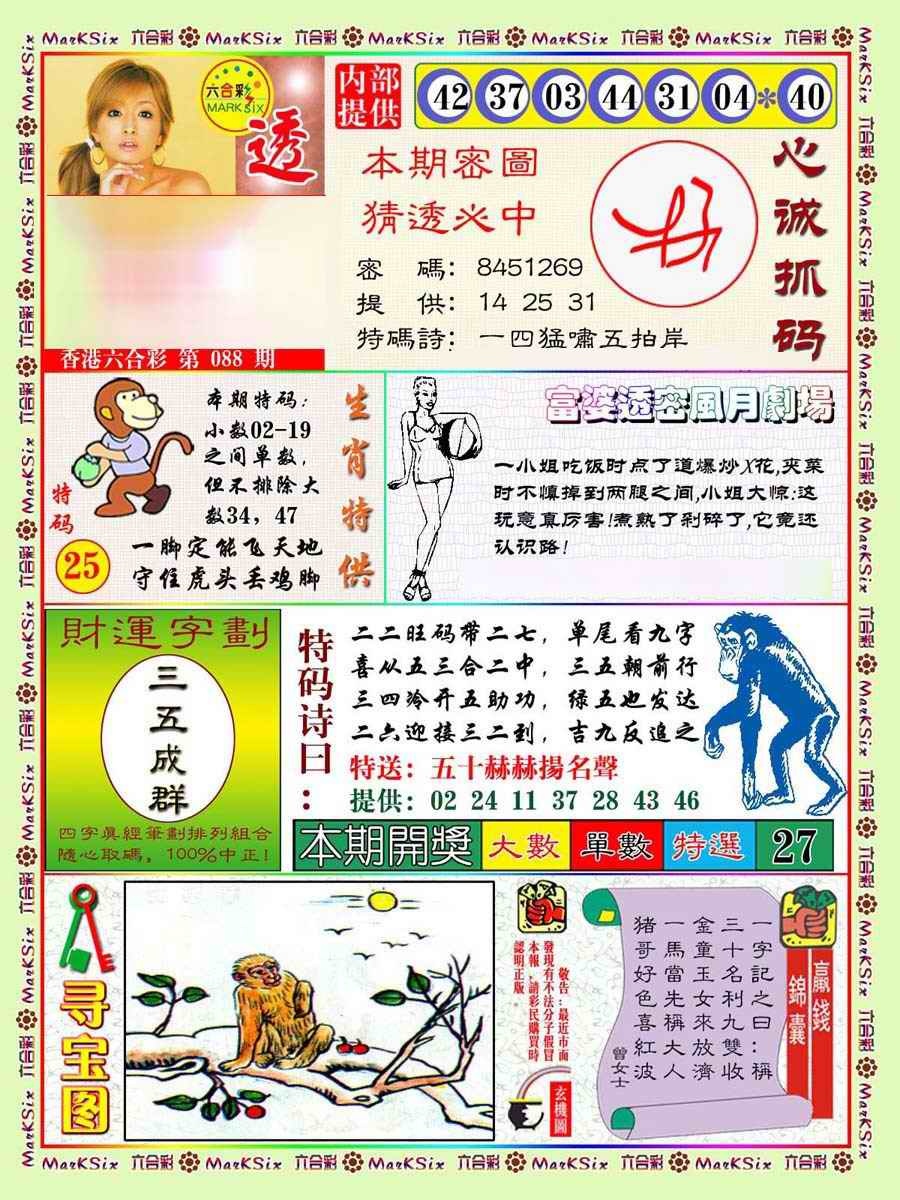 MarKSix 六合彩 MarKSix 六合彩 MarKSix 六合彩 MarKSix 六合彩 MarKSix 六合彩
六合彩
MARK SIX
透
内部
提供
42 37 03 44 31 04 * 40
本期密圖
猜透必中
密 碼: 8451269
提 供: 14 25 31
特碼詩: 一四猛嘯五拍岸
心诚抓码
香港六合彩 第 088 期
本期特码:
小数02-19
之间单数,
但不排除大
数34, 47
生肖特供
特码
25
一脚定能飞天地
守住虎头丢鸡脚
富婆透密風月劇場
一小姐吃饭时点了道爆炒X花,夹菜
时不慎掉到两腿之间,小姐大惊:这
玩意真厉害!煮熟了剁碎了,它竟还
认识路!
財運字劃
三五成群
四字眞經筆劃排列組合
隨心取碼, 100%中正!
特码诗曰:
二二旺码带二七, 单尾看九字
喜从五三合二中, 三五朝前行
三四冷开五助功, 绿五也发达
二六迎接三二到, 吉九反追之
特送: 五十赫赫揚名聲
提供: 02 24 11 37 28 43 46
本期開獎 大數 單數 特選 27
寻宝图
敬告:最近市面
發現有不法分子假冒
本報,請彩民購買時
認明正版。
玄機圖
贏錢
錦囊
一字記之曰:稱
三十名利九雙收
金童玉女來放濟
一馬當先稱大人
猪哥好色喜紅波
曾女士
MarKSix 六合彩 MarKSix 六合彩 MarKSix 六合彩 MarKSix 六合彩 MarKSix 六合彩